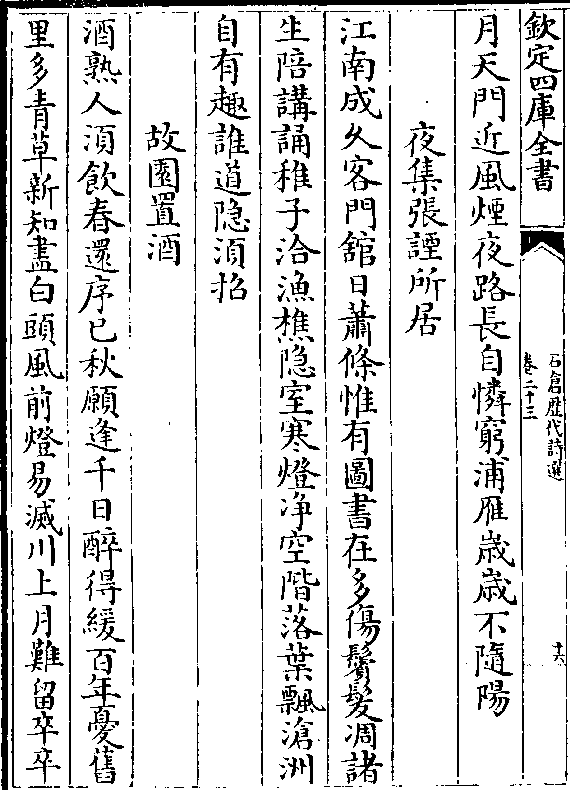 欽定四庫全書
石倉歴代詩選
卷二十三
十六
月天門近風煙夜路長自憐窮浦雁歳歳不隨陽
夜集張諲所居
江南成久客門舘日蕭條惟有圖書在多傷鬢髮凋諸
生陪講誦稚子洽漁樵隐室寒燈净空階落葉飄滄洲
自有趣誰道隐湏招
故園置酒
酒熟人湏飲春還序已秋願逢千日醉得緩百年憂舊
里多青草新知盡白頭風前燈易滅川上月難留卒卒